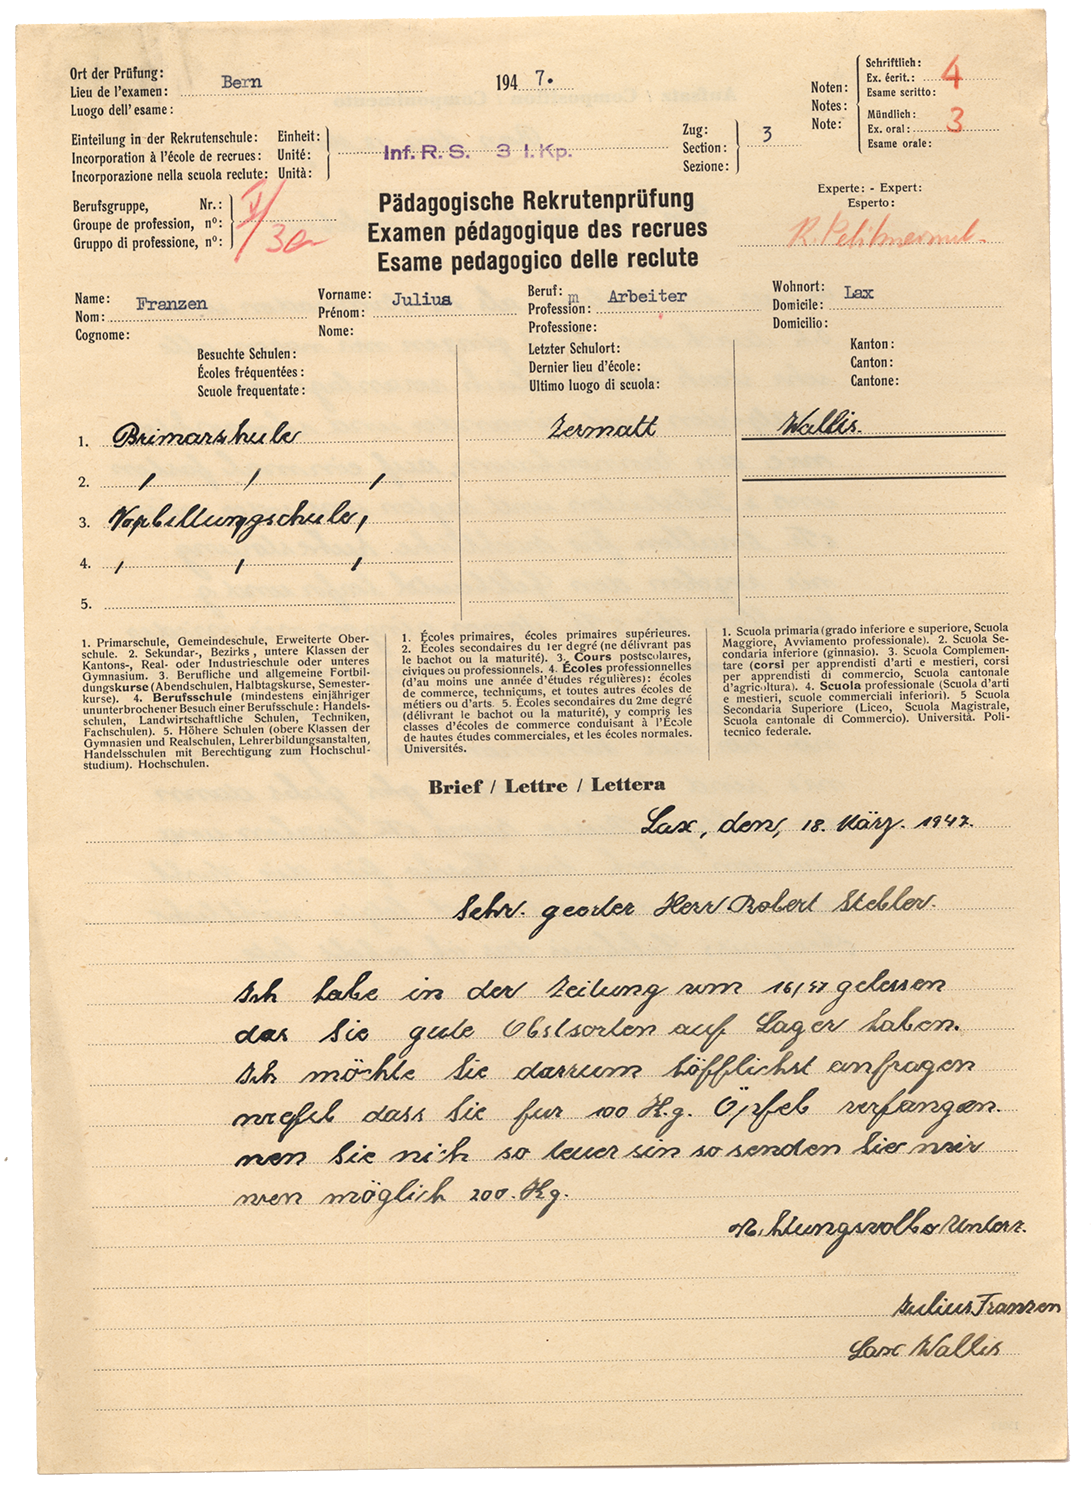 Ort der Prüfung:
Lieu de l'examen: Bern 194 7.
Luogo dell'esame:
Noten:
Notes:
Note:
Schriftlich:
Ex. écrit.: 4
Esame scritto:
Mündlich:
Ex. oral: 3
Esame orale:
Einteilung in der Rekrutenschule: Einheit:
Incorporation à l'école de recrues: Unité: Inf. R. S. 3 I. Kp.
Incorporazione nella scuola reclute: Unità:
Zug:
Section: 3
Sezione:
Berufsgruppe, Nr.:
Groupe de profession, nº: V/3a
Gruppo di professione, nº:
Pädagogische Rekrutenprüfung
Examen pédagogique des recrues
Esame pedagogico delle reclute
Experte: - Expert:
Esperto:
Name:
Nom: Franzen
Cognome:
Vorname:
Prénom: Julius
Nome:
Beruf:
Profession: Arbeiter
Professione:
Wohnort:
Domicile: Lax
Domicilio:
Besuchte Schulen:
Écoles fréquentées:
Scuole frequentate:
Letzter Schulort:
Dernier lieu d'école:
Ultimo luogo di scuola:
Kanton:
Canton:
Cantone:
1. Brimarshule Zermatt Wallis.
2. / / /
3. Vorbillungschule,
4. / / /
5.
1. Primarschule, Gemeindeschule, Erweiterte Ober-
schule. 2. Sekundar-, Bezirks, untere Klassen der
Kantons-, Real- oder Industrieschule oder unteres
Gymnasium. 3. Berufliche und allgemeine Fortbil-
dungskurse (Abendschulen, Halbtagskurse, Semester-
kurse). 4. Berufsschule (mindestens einjähriger
ununterbrochener Besuch einer Berufsschule: Handels-
schulen, Landwirtschaftliche Schulen, Techniken,
Fachschulen). 5. Höhere Schulen (obere Klassen der
Gymnasien und Realschulen, Lehrerbildungsanstalten,
Handelsschulen mit Berechtigung zum Hochschul-
studium). Hochschulen.
1. Écoles primaires, écoles primaires supérieures.
2. Écoles secondaires du 1er degré (ne délivrant pas
le bachot ou la maturité). 3. Cours postscolaires,
civiques ou professionels. 4. Écoles professionnelles
(d'au moins une année d'études régulières): écoles
de commerce, technicums, et toutes autres écoles de
métiers ou d'arts. 5. Écoles secondaires du 2me degré
(délivrant le bachot ou la maturité), y compris les
classes d'écoles de commerce conduisant à l'École
de hautes études commerciales, et les écoles normales.
Universités.
1. Scuola primaria (grado inferiore e superiore, Scuola
Maggiore, Avviamento professionale). 2. Scuola Se-
condaria inferiore (ginnasio). 3. Scuola Complemen-
tare (corsi per apprendisti d'arti e mestieri, corsi
per apprendisti di commercio, Scuola cantonale
d'agricoltura). 4. Scuola professionale (Scuola d'arti
e mestieri, scuole commerciali inferiori). 5 Scuola
Secondaria Superiore (Liceo, Scuola Magistrale,
Scuola cantonale di Commercio). Università. Poli-
tecnico federale.
Brief / Lettre / Lettera
Lax, den, 18. März. 1947.
Sehr. georter Herr Robert Stebler.
Ich habe in der Zeitung vom 16/47 gelessen
das Sie gute Obstsorten auf Lager haben.
Ich möchte Sie darrum höfflichst anfragen
wiefil dass Sie fur 100 K.g. Öpfel verfangen.
wen Sie nich so teuer sin so senden Sie mir
wen möglich 200. Kg.
Achtungsvolle Unterz.
Julius Franzen
Lax Wallis